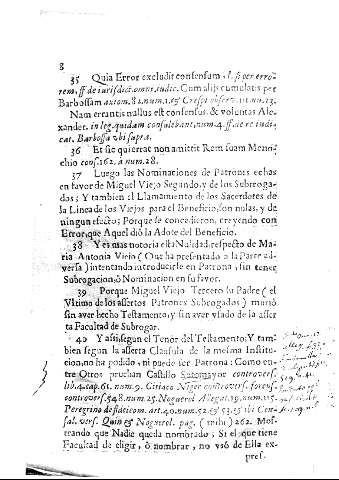 8
35 Quia Error excludit consensum, L. si per erro-
rem, ff. de iurisdict. omn. iudic. Cum alijs cumulatis per
Barbossam axiom. 81. num. 1. & Crespi observ. 111. nu. 13.
Nam errantis nullus est consensus, & voluntas Ale-
xander. in leg. quidam consulebant, num. 4. ff. de re iudi-
cat. Barbossa vbi supra.
36 Et sic qui errat non amittit Rem suam Meno-
chio cons. 162. á num. 28.
37 Luego las Nominaciones de Patrones echas
en favor de Miguel Viejo Segundo, y de los Subroga-
dos; Y tambien el Llamamiento de los Sacerdotes de
la Linea de los Viejos para el Beneficio, son nulas, y de
ningun efecto; Porque le concedieron, creyendo con
Error, que Aquel dió la Dote del Beneficio.
38 Y es mas notoria esta Nulidad, respecto de Ma-
ria Antonia Viejo (Que ha presentado a la Parte ad-
versa) intentando introducirle en Patrona, sin tener
Subrogacion, ó Nominacion en su favor.
39 Porque Miguel Viejo Tercero su Padre (el
Vltimo de los asertos Patrones Subrogados) murió
sin aver hecho Testamento, y sin aver vsado de la aser-
ta Facultad de Subrogar.
40 Y assi segun el Tenor del Testamento; Y tam-
bien segun la aserta Clausula de la mesma Institu-
cion, no ha podido, ni puede ser Patrona: Como en-
tre Otros pruehan Castillo Sotomayor controvers.
lib. 4. cap. 61. num. 9. Ciriaco Niger controvers. forens.
controvers. 548. num. 25. Noguerol Allegat. 19. num. 115.
Peregrino de fideicom. art. 40. num. 52. & 53. & ibi Cen-
sal. vers. Quin & Noguerol. pag. (mihi) 262. Mos-
trando que Nadie queda nombrado; Si el que tiene
Facultad de eligir, ó nombrar, no vsó de Ella ex-
pres.